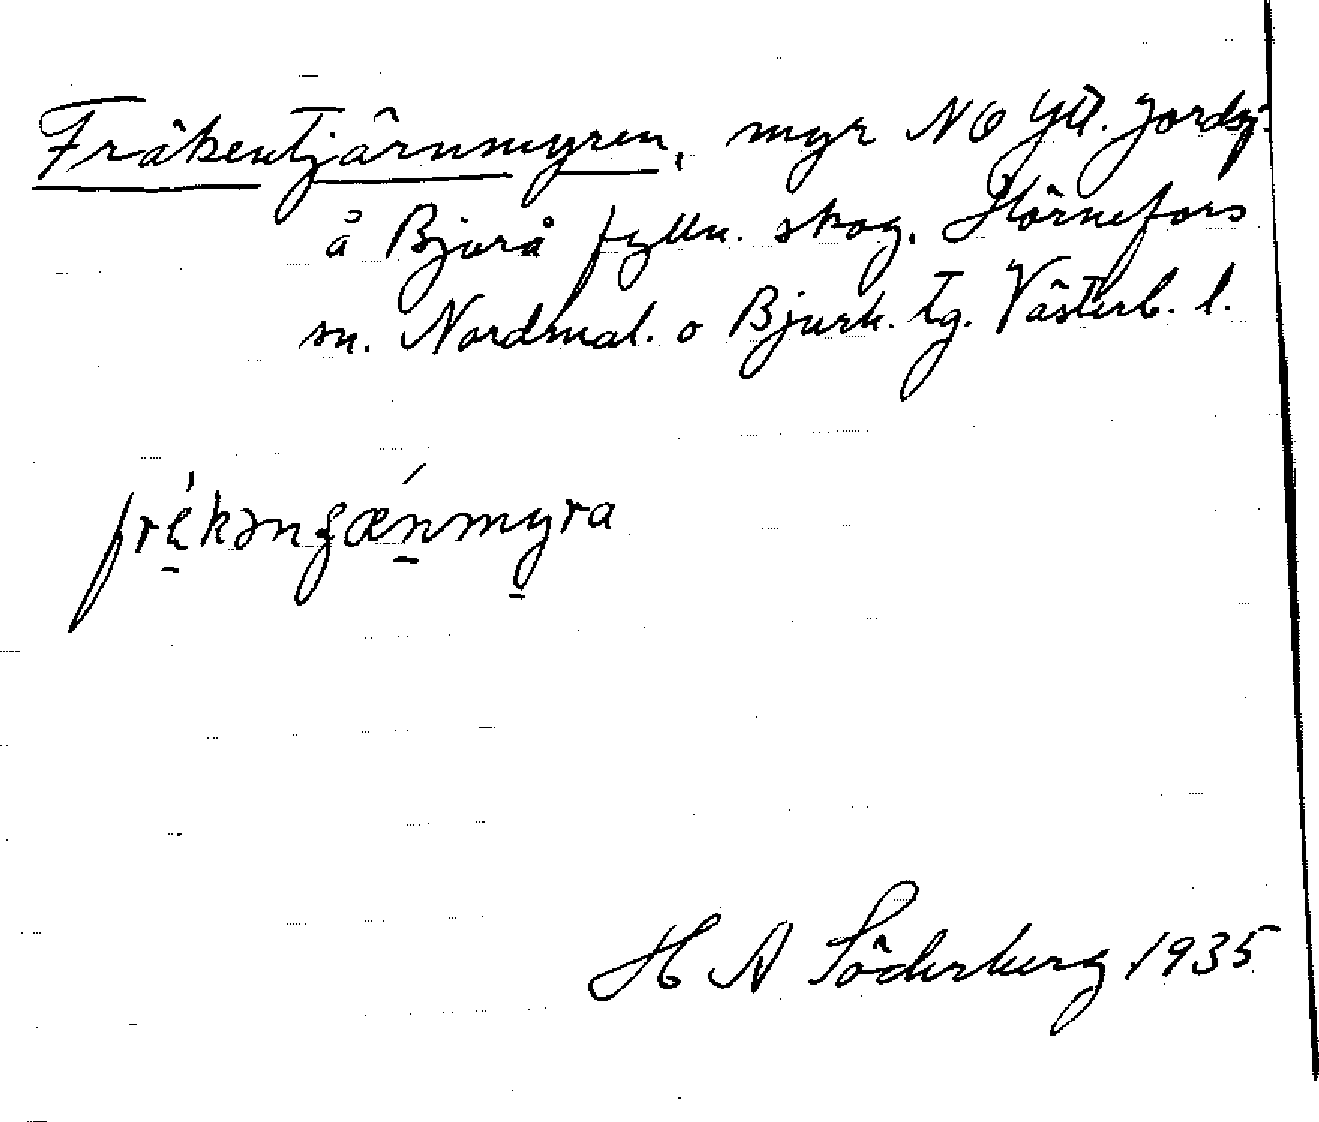 Fräkentjärnmyren, myr NO Ytt. Jordsj.
å Bjurå fylln. skog. Hörnefors
sn. Nordmal. o Bjurh. tg. Västerb. l.
frékənʒǽnmyra
H A Söderberg 1935